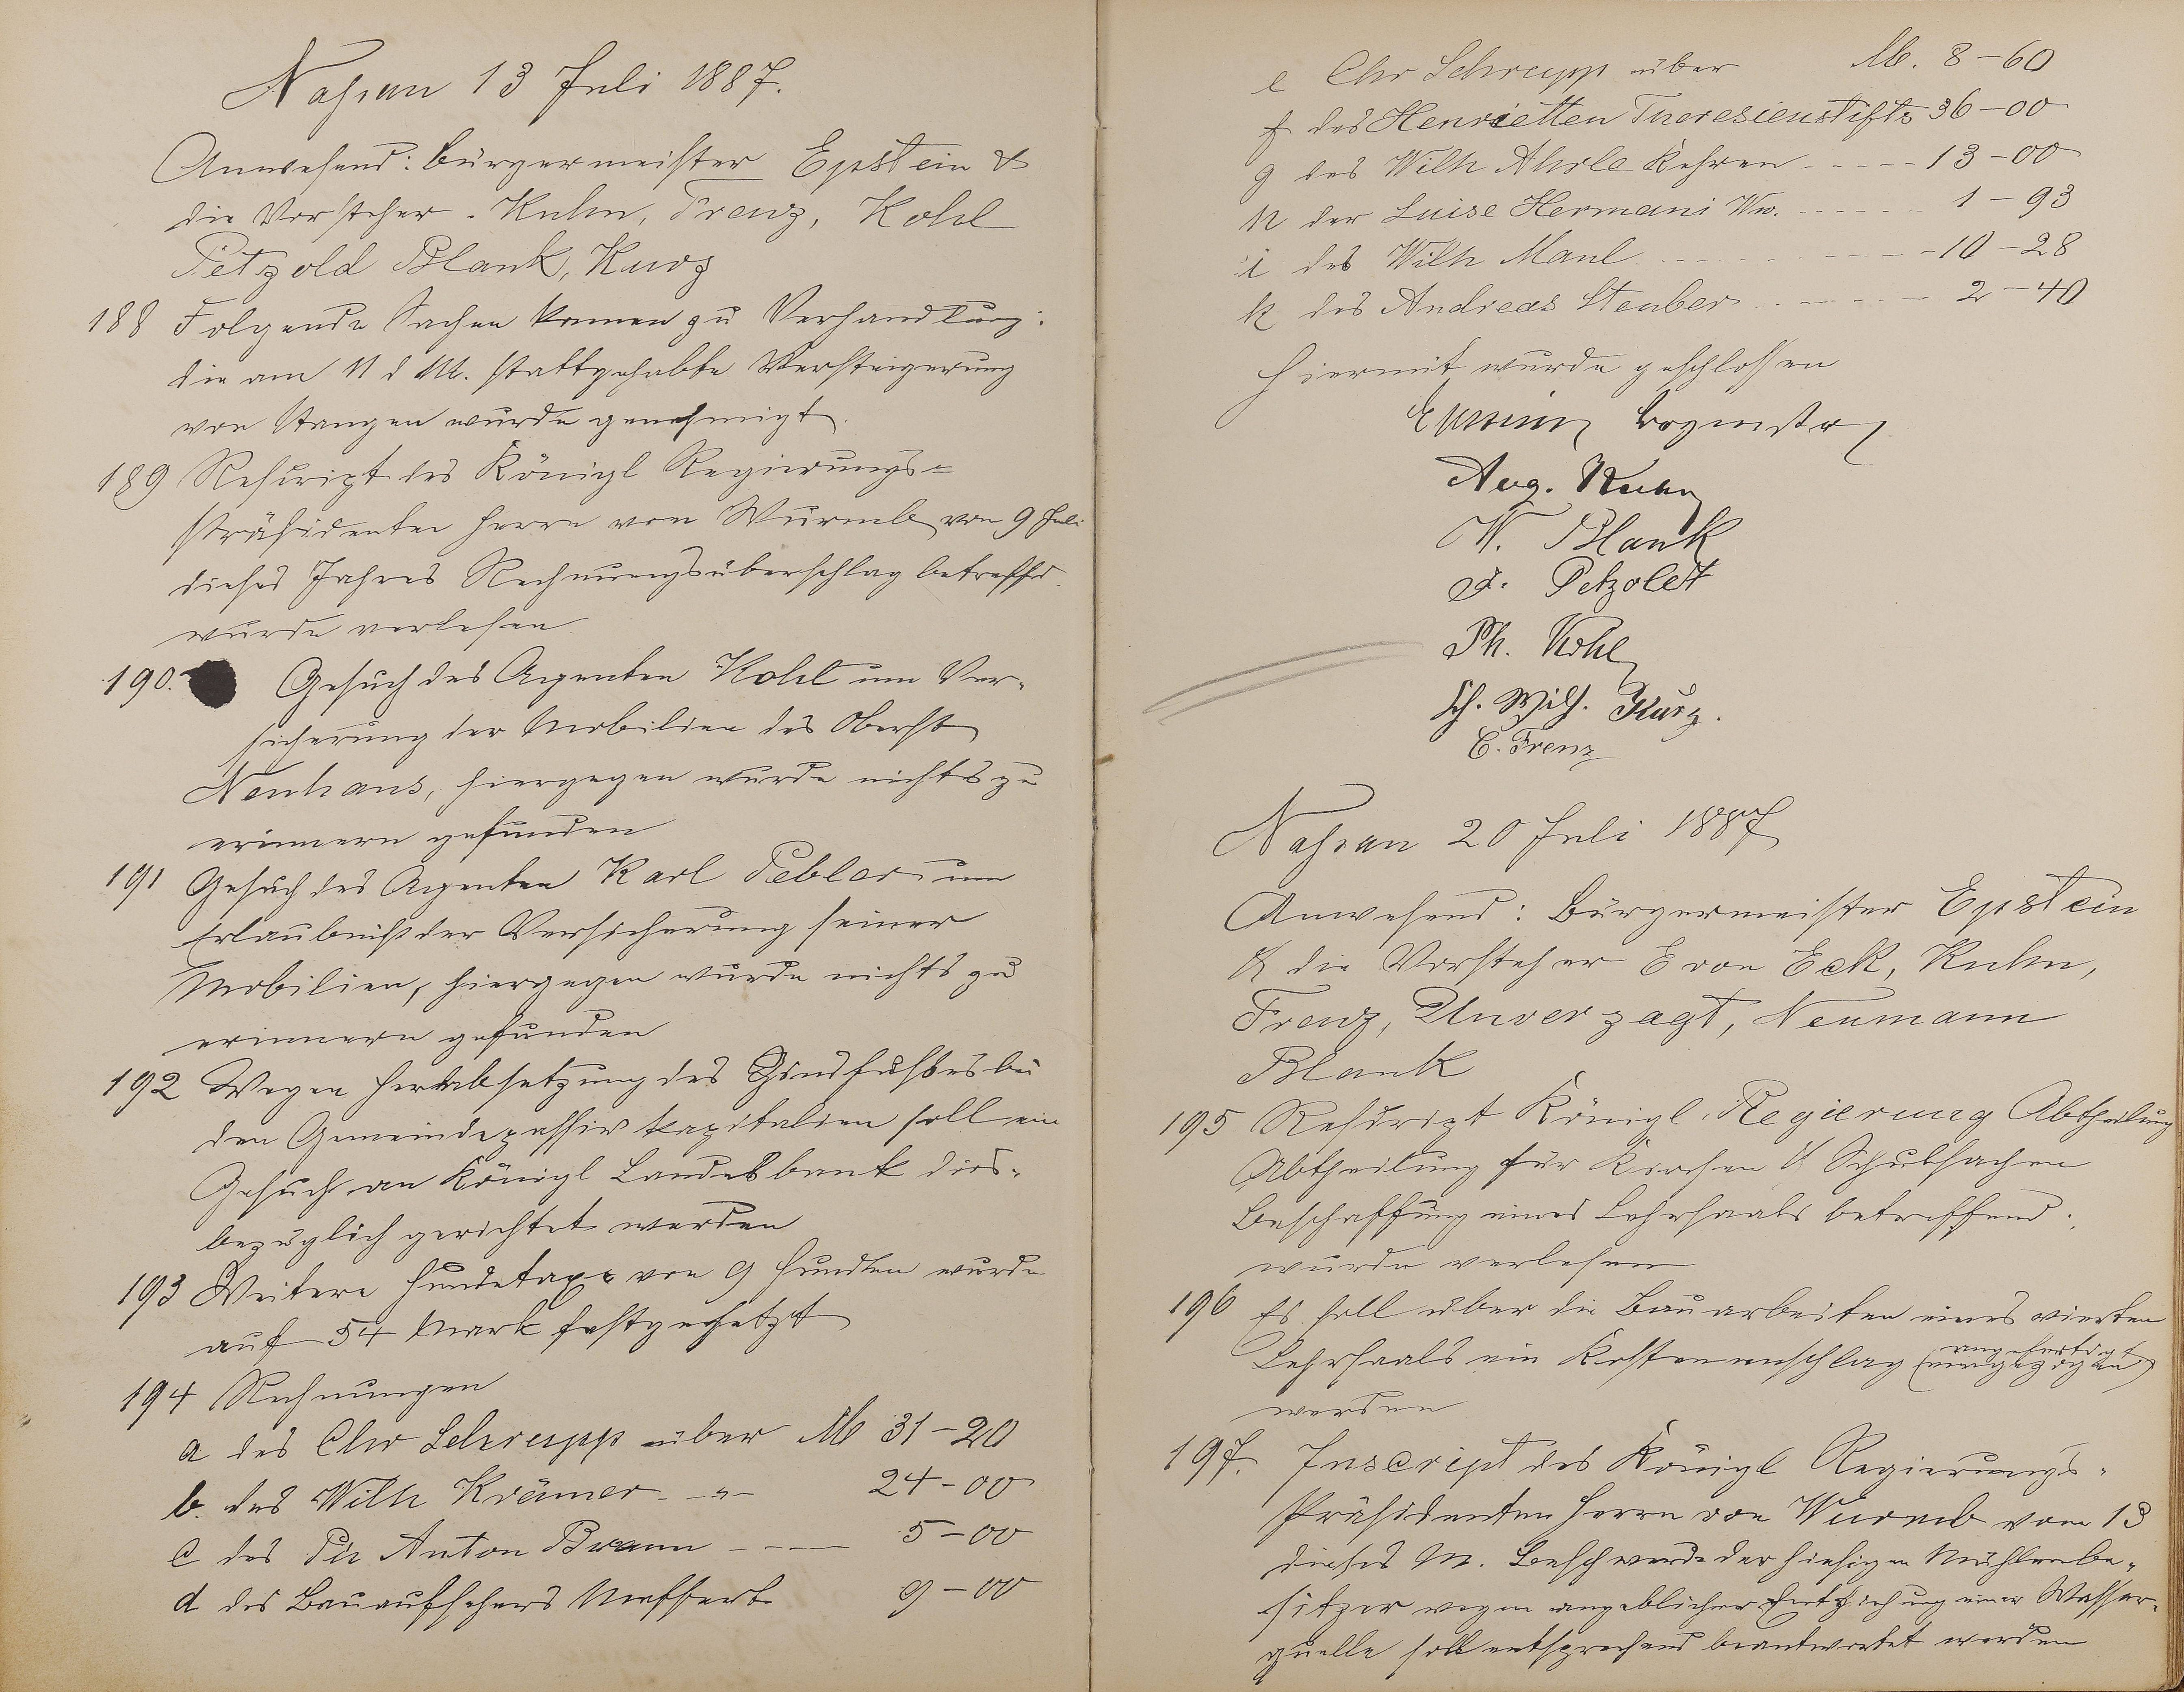 Nassau 13 Juli 1887.
Anwesend: Bürgermeister Epstein &
die Vorsteher. Kuhn, Frenz, Kohl
Petzold Blank, Kurz
188 Folgende Sachen kamen zu Verhandlung:
die am 11 d M. stattgehabte Versteigerung
von Stangen wurde genehmigt.
189 Rescript des Königl Regierungs=
Präsidenten Herrn von Wurmb vom 9 Juli
dieses Jahres Rechnungsüberschlag betreffd.
wurde verlesen
190. Gesuch des Agenten Kohl um Ver-
sicherung der Mobilien des Oberst
Neuhaus, hiergegen wurde nichts zu
erinnern gefunden
191 Gesuch des Agenten Karl Pebler um
Erlaubniß der Versicherung seiner
Mobilien, hiergegen wurde nichts zu
erinnern gefunden
192 Wegen Herabsetzung des Zinsfußes bei
den Gemeindepassiv kapitalien soll ein
Gesuch an Königl Landesbank dies-
bezüglich gerichtet werden
193 Weitere Hundetaxe von 9 Hunden wurde
auf 54 Mark festgesetzt
194 Rechnungen
a des Chr Schrupp über M 31-20
b. des Wilh Krämer -"- 24-00
c des Ph Anton Braun ---- 5-00
d des Bauaufsehers Neffert 9-00
e Chr Schrupp über M. 8-60
f des Henrietten Theresienstifts 36-00
g des Wilh Ahrle Kehren ----- 13-00
h der Luise Hermani Ww. ------ 1-93
i des Wilh Maul ---------- 10-28
k des Andreas Steuber ------ 2-40
Hiermit wurde geschlossen
Epstein Bgmstr
Aug. Kuhn
W. Blank
Petzoldt
Ph. Kohl
Wilh. Kurz.
C. Frenz
Nassau 20 Juli 1887
Anwesend: Bürgermeister Epstein
& die Vorsteher E von Eck, Kuhn,
Frenz, Unverzagt, Neumann
Blank
195 Rescript Königl. Regierung Abtheilung
Abtheilung für Kirchen & Schulsachen
Beschaffung eines Lehrsaals betreffend.
wurde verlesen
196 Es soll über die Bauarbeiten eines vierten
angefertigt
Lehrsaals ein Kostenanschlag (eingezogen)
werden
197. Inscript des Königl Regierungs-
Präsidenten Herrn von Wurmb vom 13
dieses M. Beschwerde der hiesigen Mühlenbe-
sitzer wegen angeblicher Entziehung einer Wasser-
quelle soll entsprechend beantwortet werden